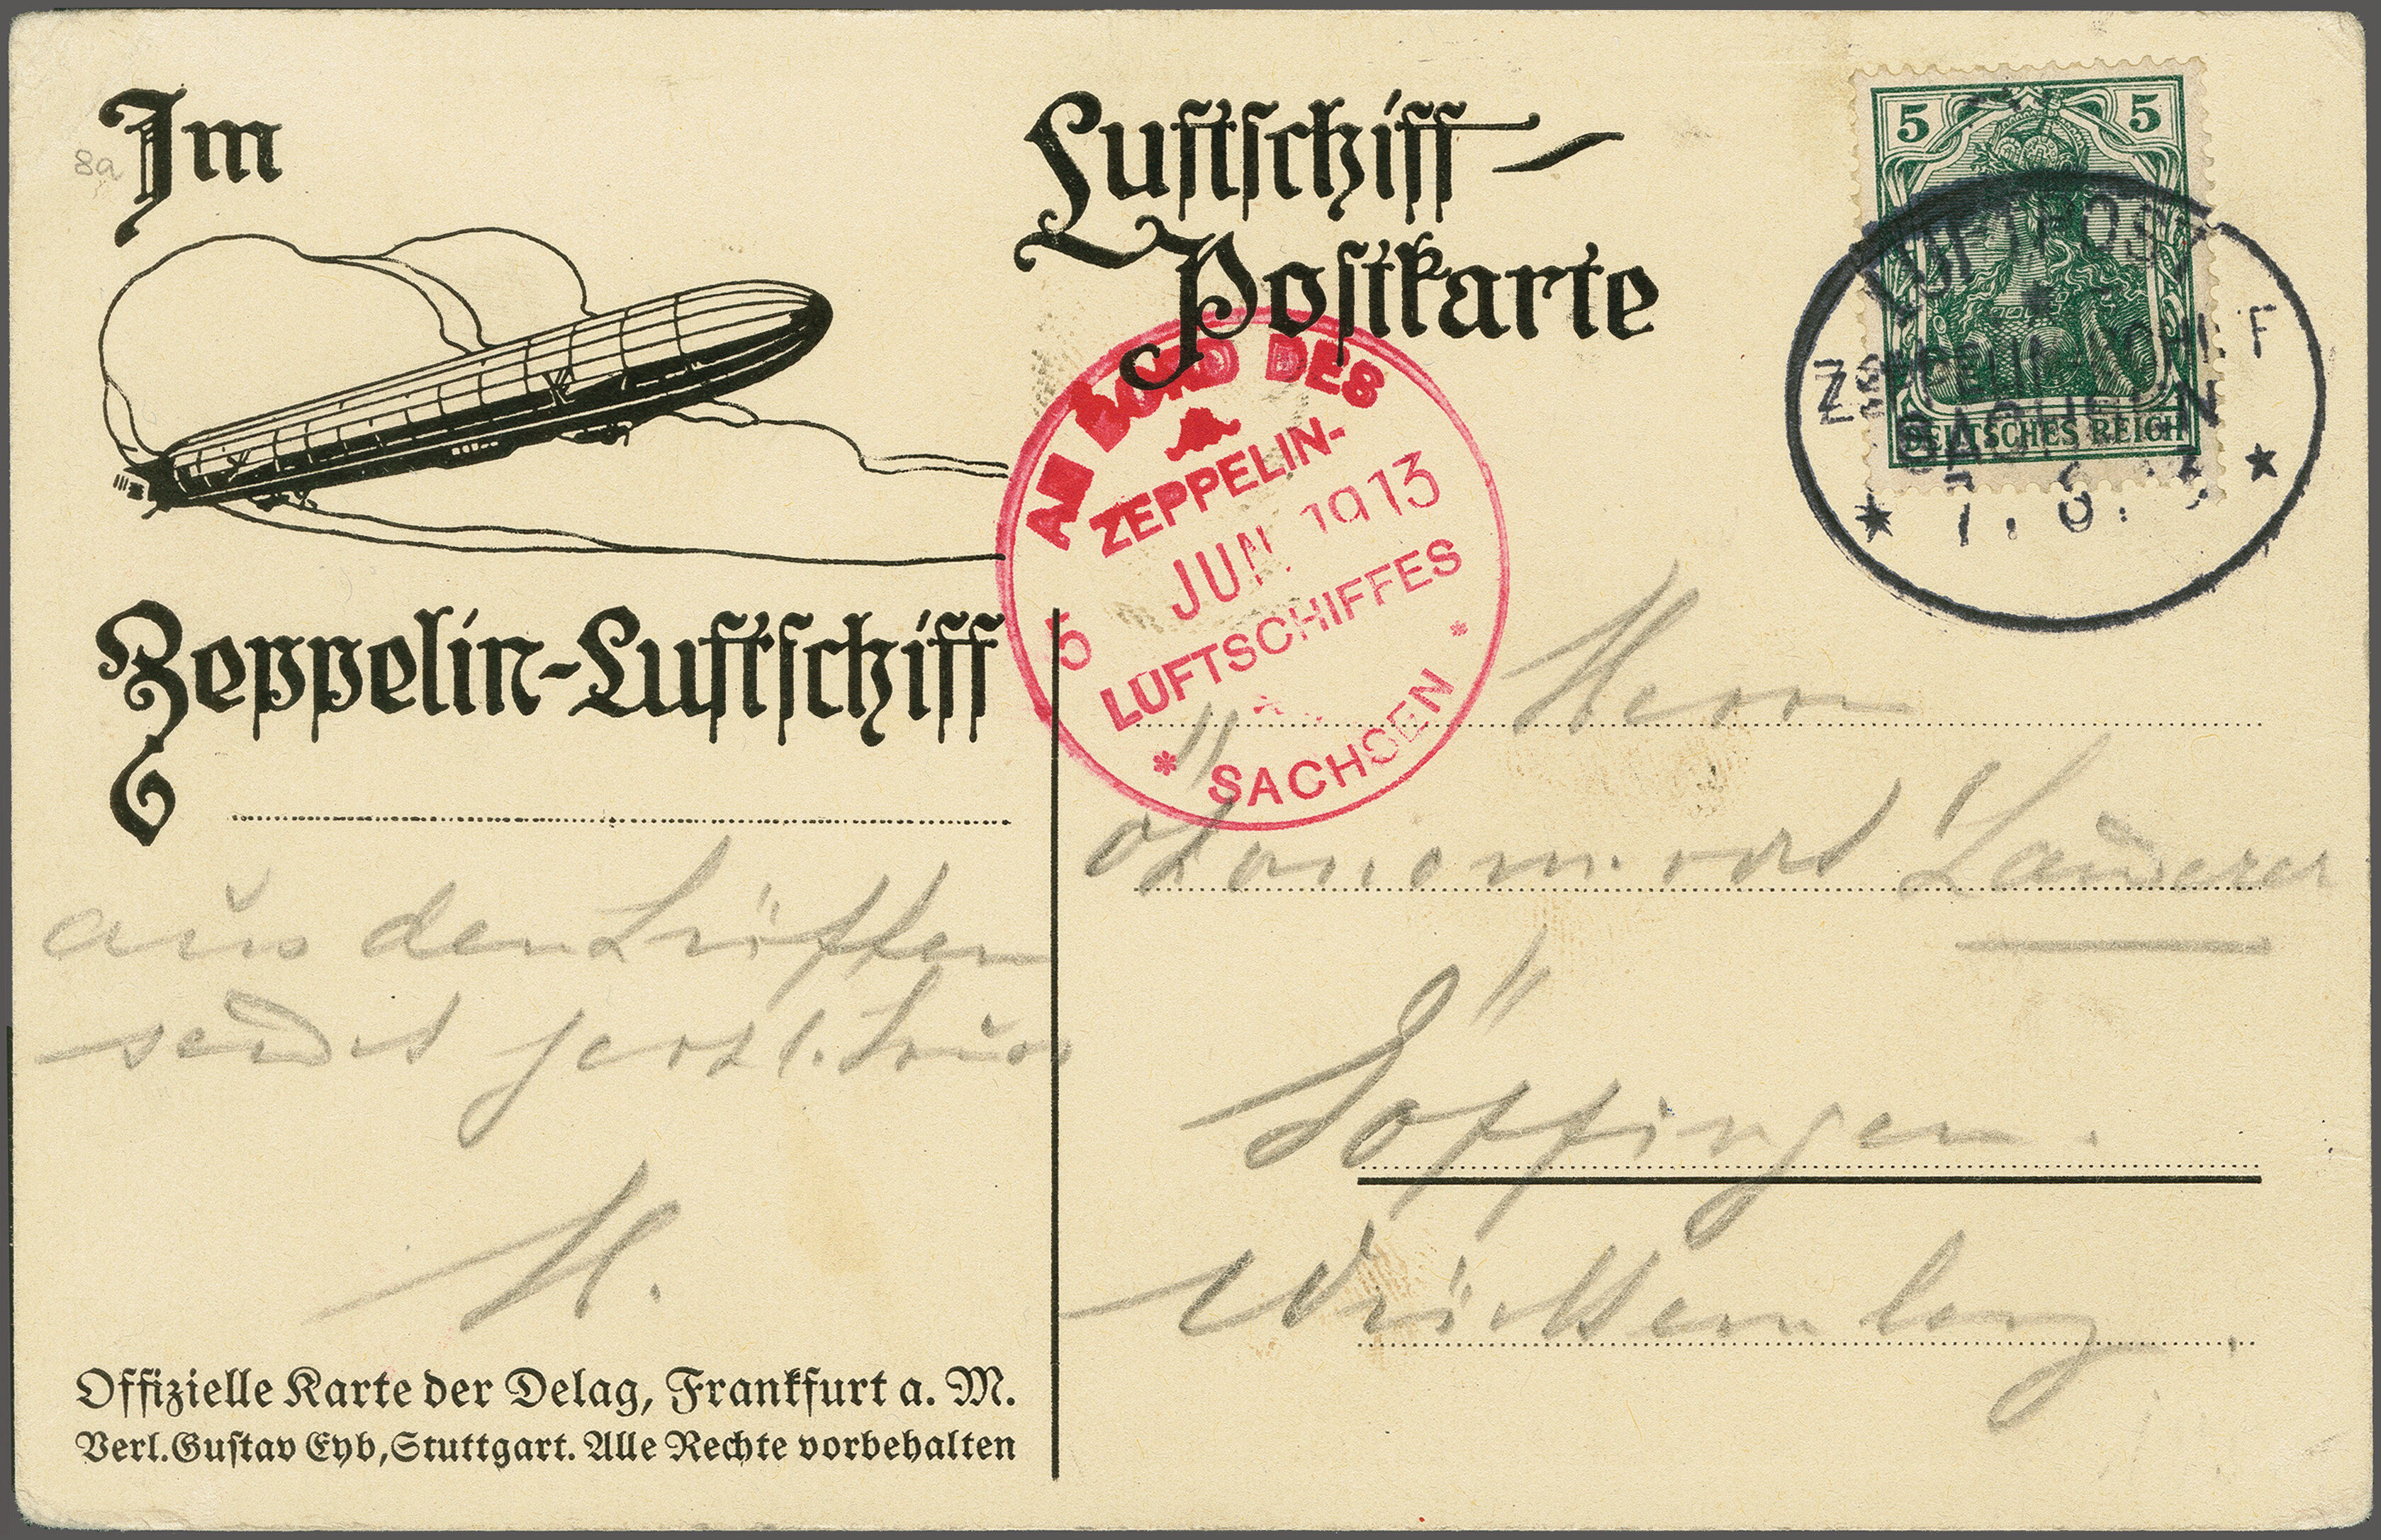 Im
8a
Zeppelin-Luftschiff
aus den Lüften
sendet herzl. Gruss
H.
Offizielle Karte der Delag, Frankfurt a. M.
Verl. Gustav Eyb, Stuttgart. Alle Rechte vorbehalten
Luftschiff-
Postkarte
AN BORD DES
ZEPPELIN-
5 JUN 1913
LUFTSCHIFFES
* SACHSEN *
5 5
DEUTSCHES REICH
LUFTPOST
ZEPPELIN-SCHIFF
SACHSEN
Herrn
Ökonom.rat Landerer
Göppingen.
Württemberg.